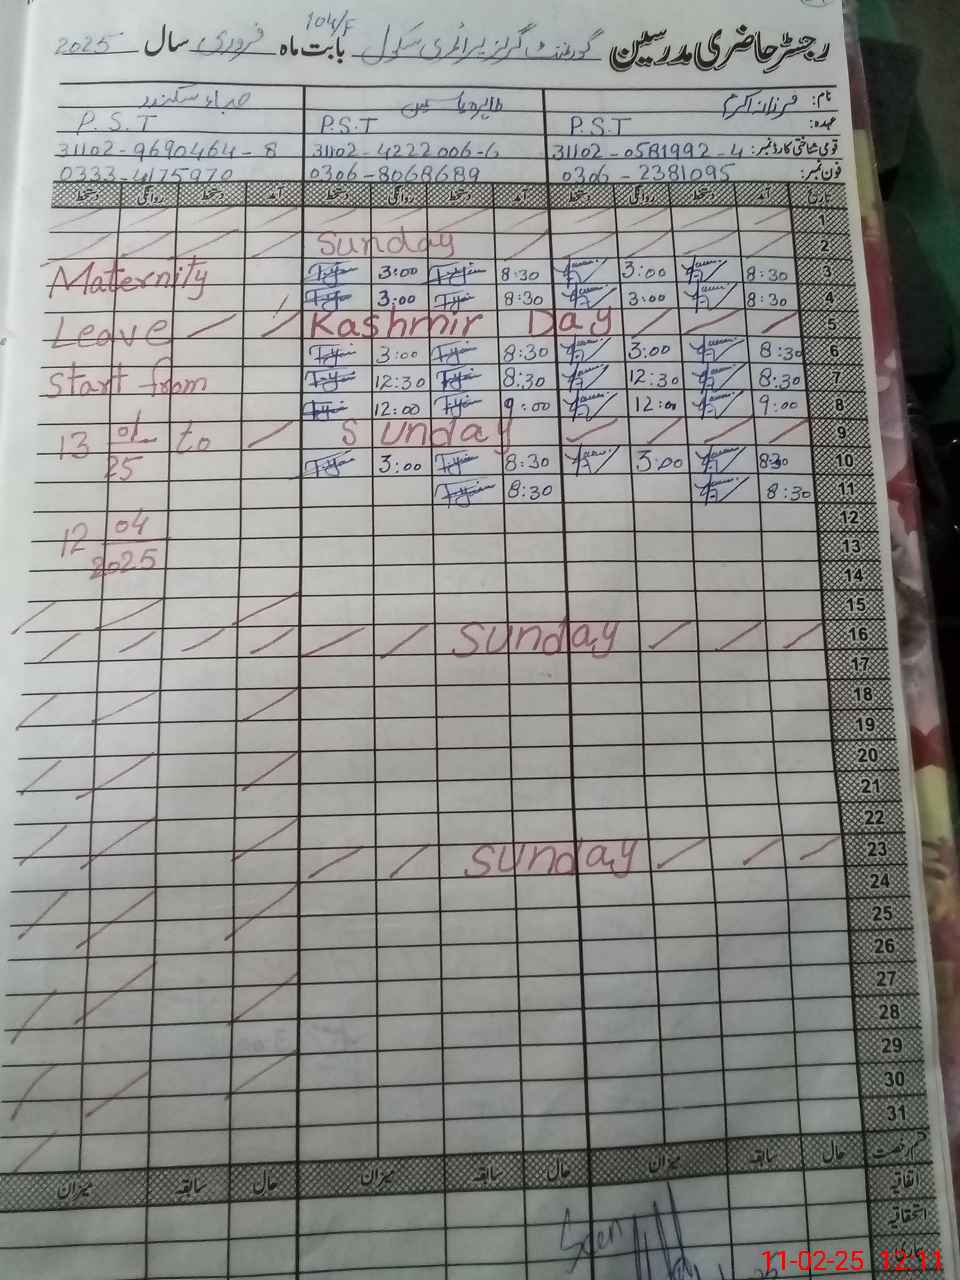 104/F
رجسٹر حاضری مدرسین گورنمنٹ گرلز پرائمری سکول بابت ماہ فروری سال 2025
نام: فرزانہ اکرم طاہرہ یاسمین سکندر
عہدہ: P.S.T P.S.T P.S.T
قومی شناختی کارڈ نمبر: 31102-0581992-4 31102-4222006-6 31102-9690464-8
فون نمبر: 0306-2381095 0306-8068689 0333-4175970
تاریخ آمد دستخط روانگی دستخط آمد دستخط روانگی دستخط آمد دستخط روانگی دستخط
1
2 Sunday
3 8:30 3:00 8:30 3:00 Maternity
4 8:30 3:00 8:30 3:00
5 Kashmir Day Leave
6 8:30 3:00 8:30 3:00
7 8:30 12:30 8:30 12:30 Start from
8 9:00 12:00 9:00 12:00
9 Sunday 13 01 to
10 8:30 3:00 8:30 3:00 25
11 8:30 8:30
12 12 04
13 2025
14
15
16 Sunday
17
18
19
20
21
22
23 Sunday
24
25
26
27
28
29
30
31
قسم رخصت حال سابقہ میزان حال سابقہ میزان حال سابقہ میزان
اتفاقیہ
استحقاقیہ
بیماری
Seen
11-02-25 12:11